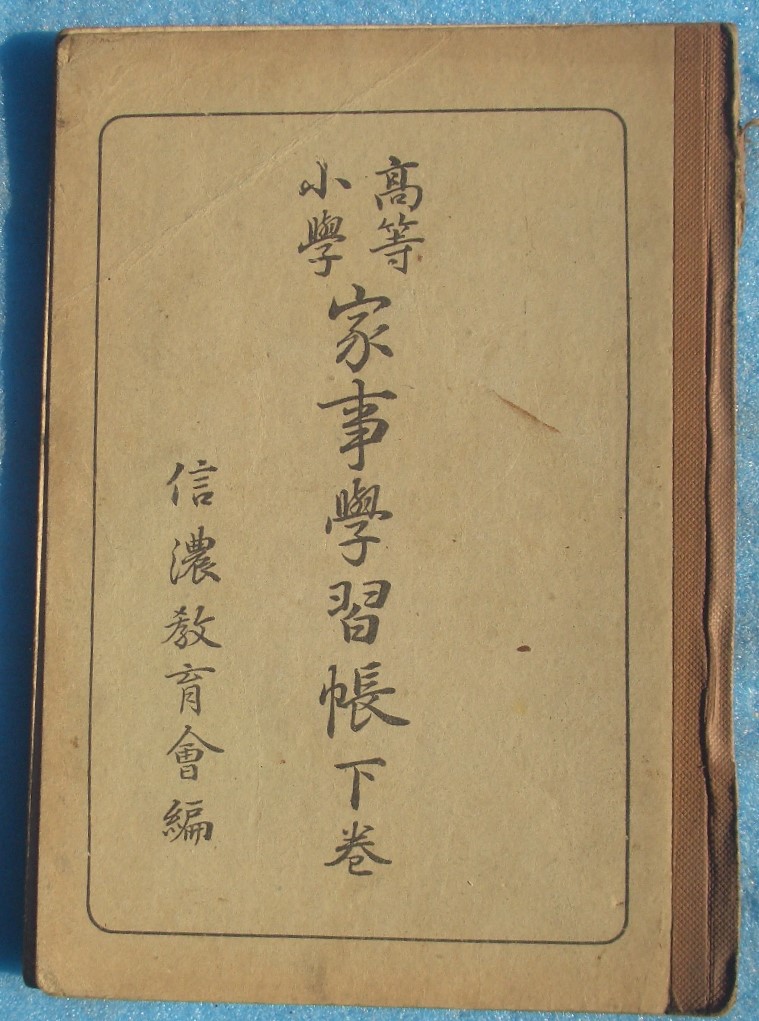 高等
小學
家事學習帳下巻
信濃教育會編